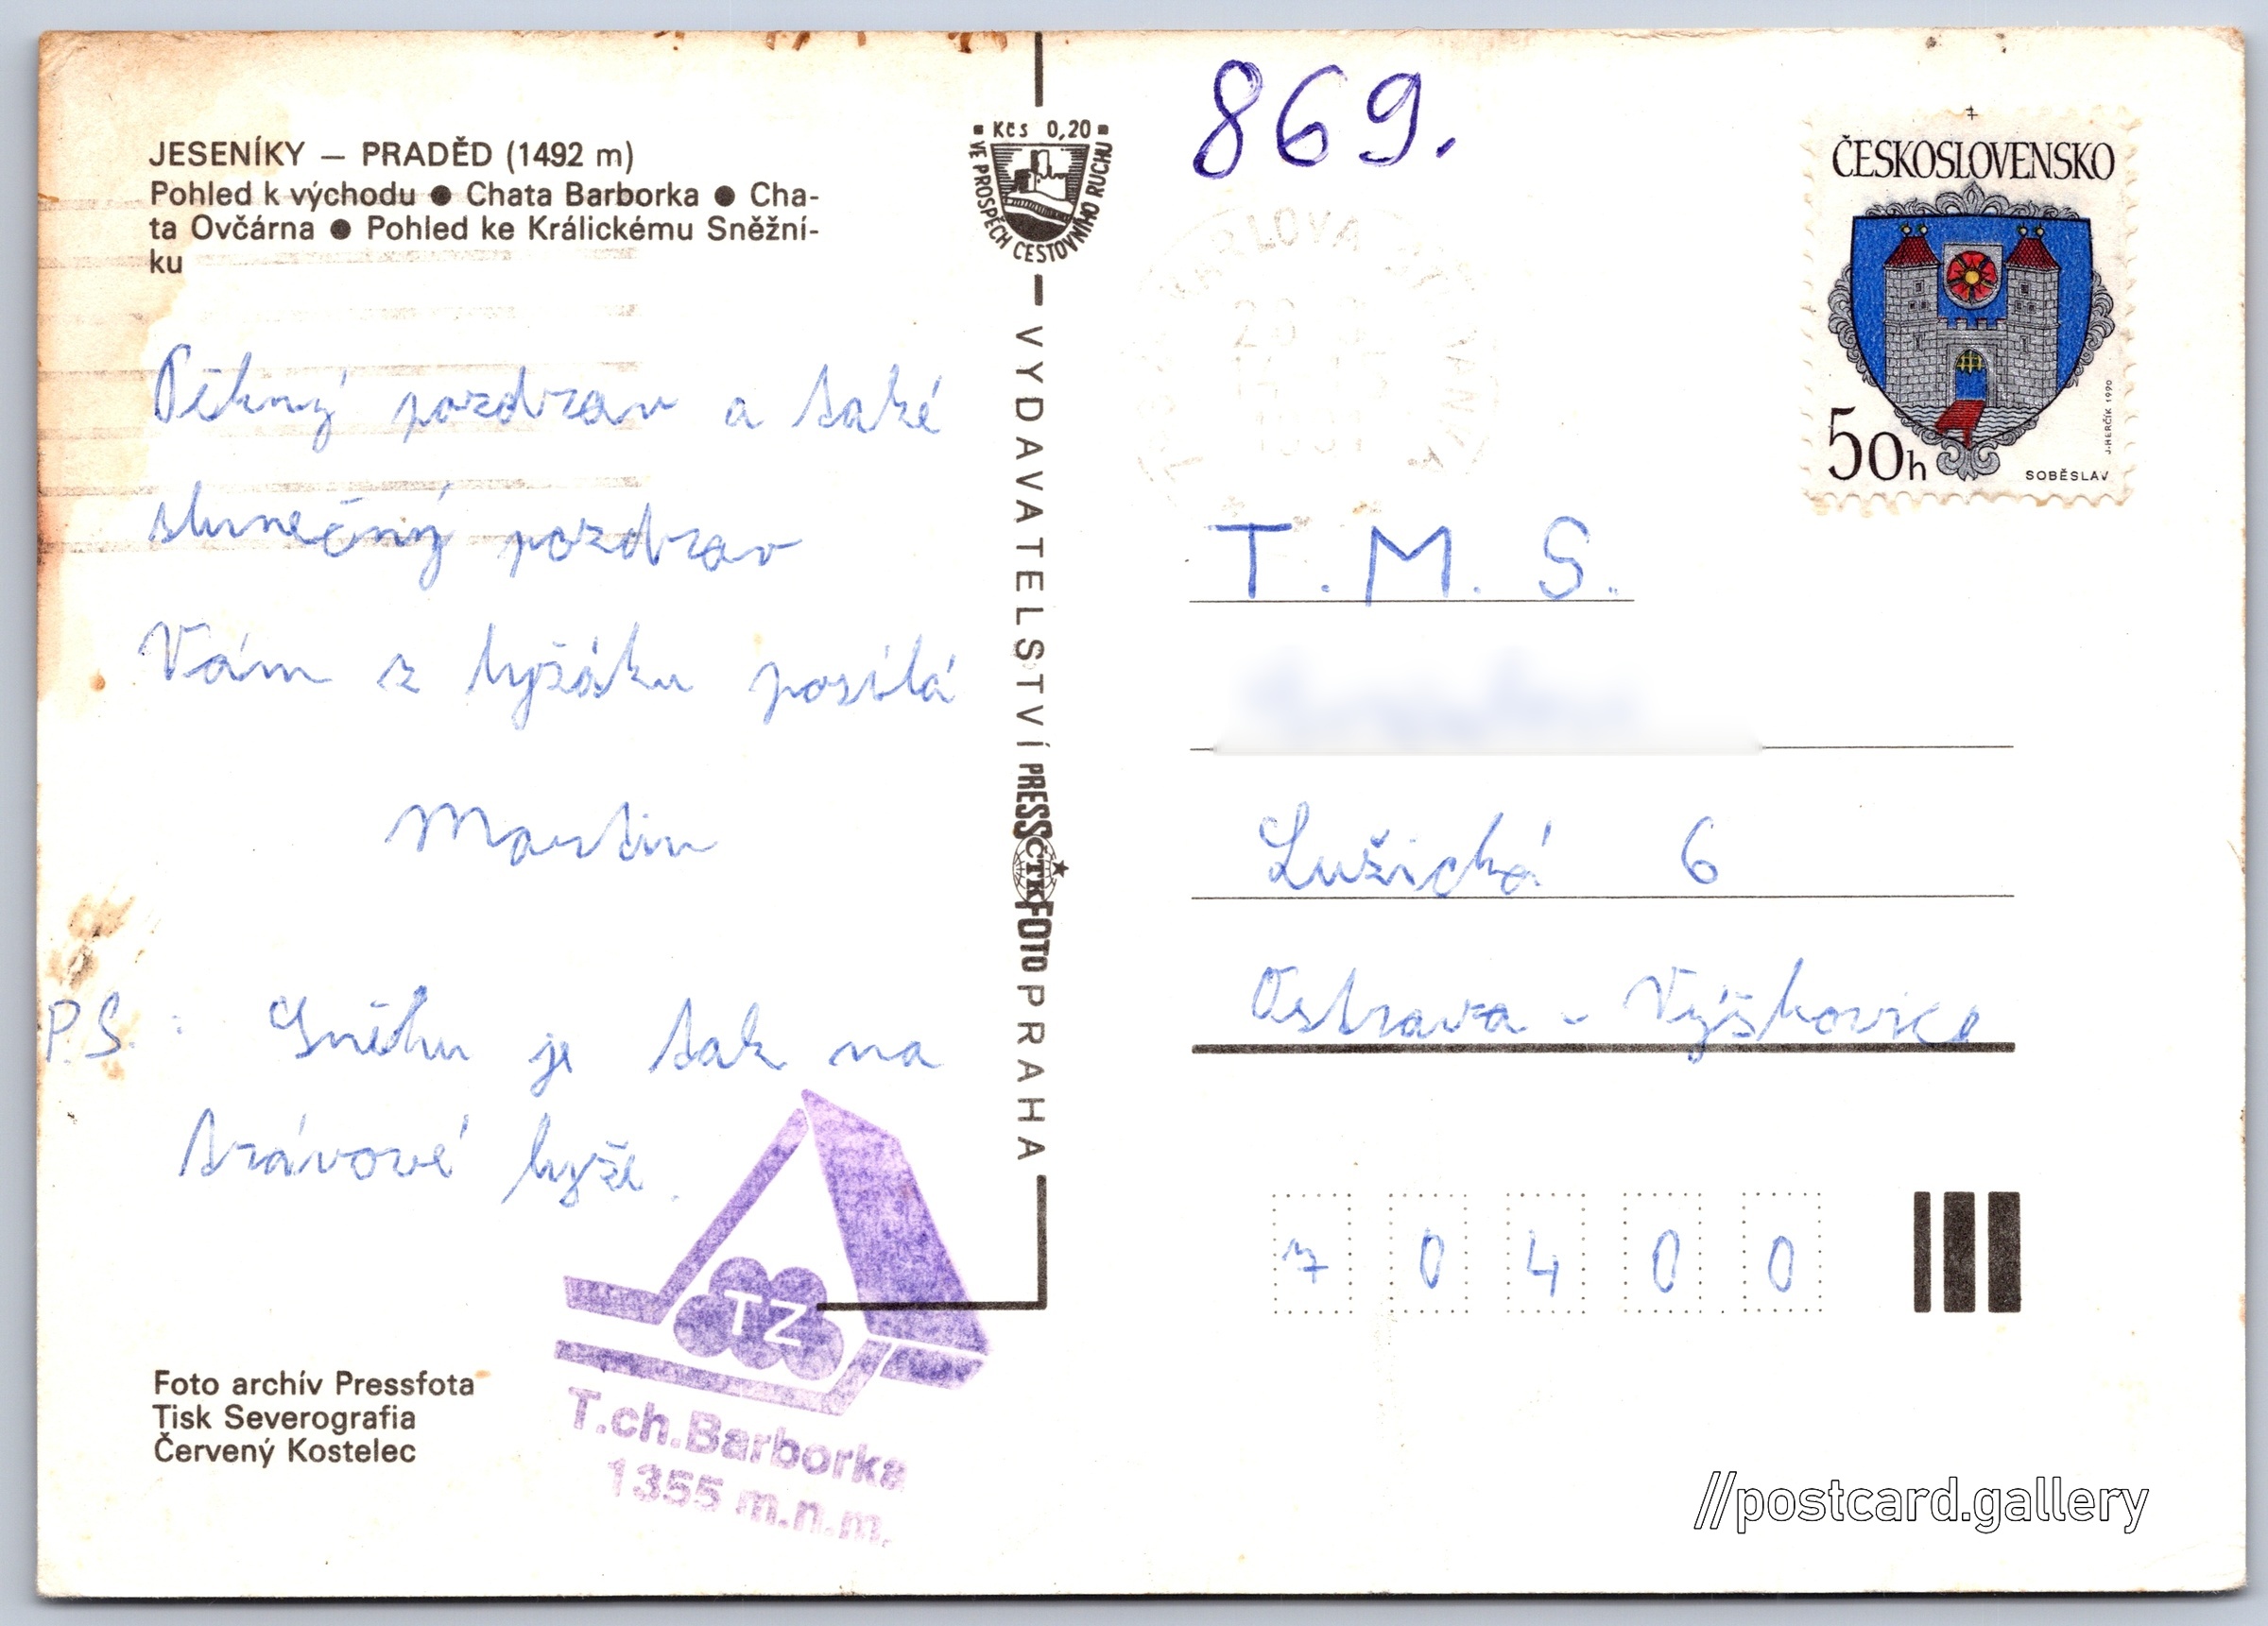 JESENÍKY – PRADĚD (1492 m)
Pohled k východu ● Chata Barborka ● Cha-
ta Ovčárna ● Pohled ke Králickému Sněžní-
ku
Pěkný pozdrav a také
slunečný pozdrav
Vám z lyžáku posílá
Martin
P.S.: Sněhu je tak na
trávové lyže.
TZ
T.ch.Barborka
1355 m.n.m.
Foto archív Pressfota
Tisk Severografia
Červený Kostelec
Kčs 0,20
VE PROSPĚCH CESTOVNÍHO RUCHU
VYDAVATELSTVÍ PRESSFOTO PRAHA
ČTK
869.
ČESKOSLOVENSKO
50h
SOBĚSLAV
J.HERČÍK 1990
KARLOVA
T. M. S.
Lužická 6
Ostrava - Výškovice
70400
//postcard.gallery